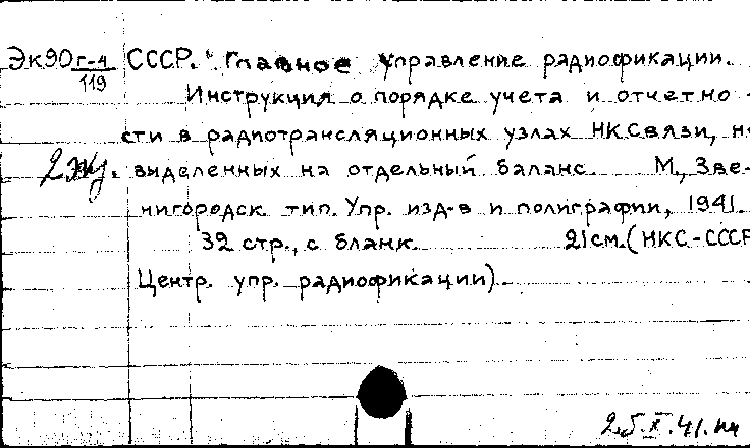 Эк90 г-4/119 СССР. Главное управление радиофикации.
Инструкция о порядке учета и отчетно-
сти в радиотрансляционных узлах НКСвязи, н
2 экз. выделенных на отдельный баланс. М., Зве-
нигородск. тип. Упр. изд-в и полиграфии, 1941.
32 стр., с бланк. 21 см. (НКС-СССР
Центр. упр. радиофикации).